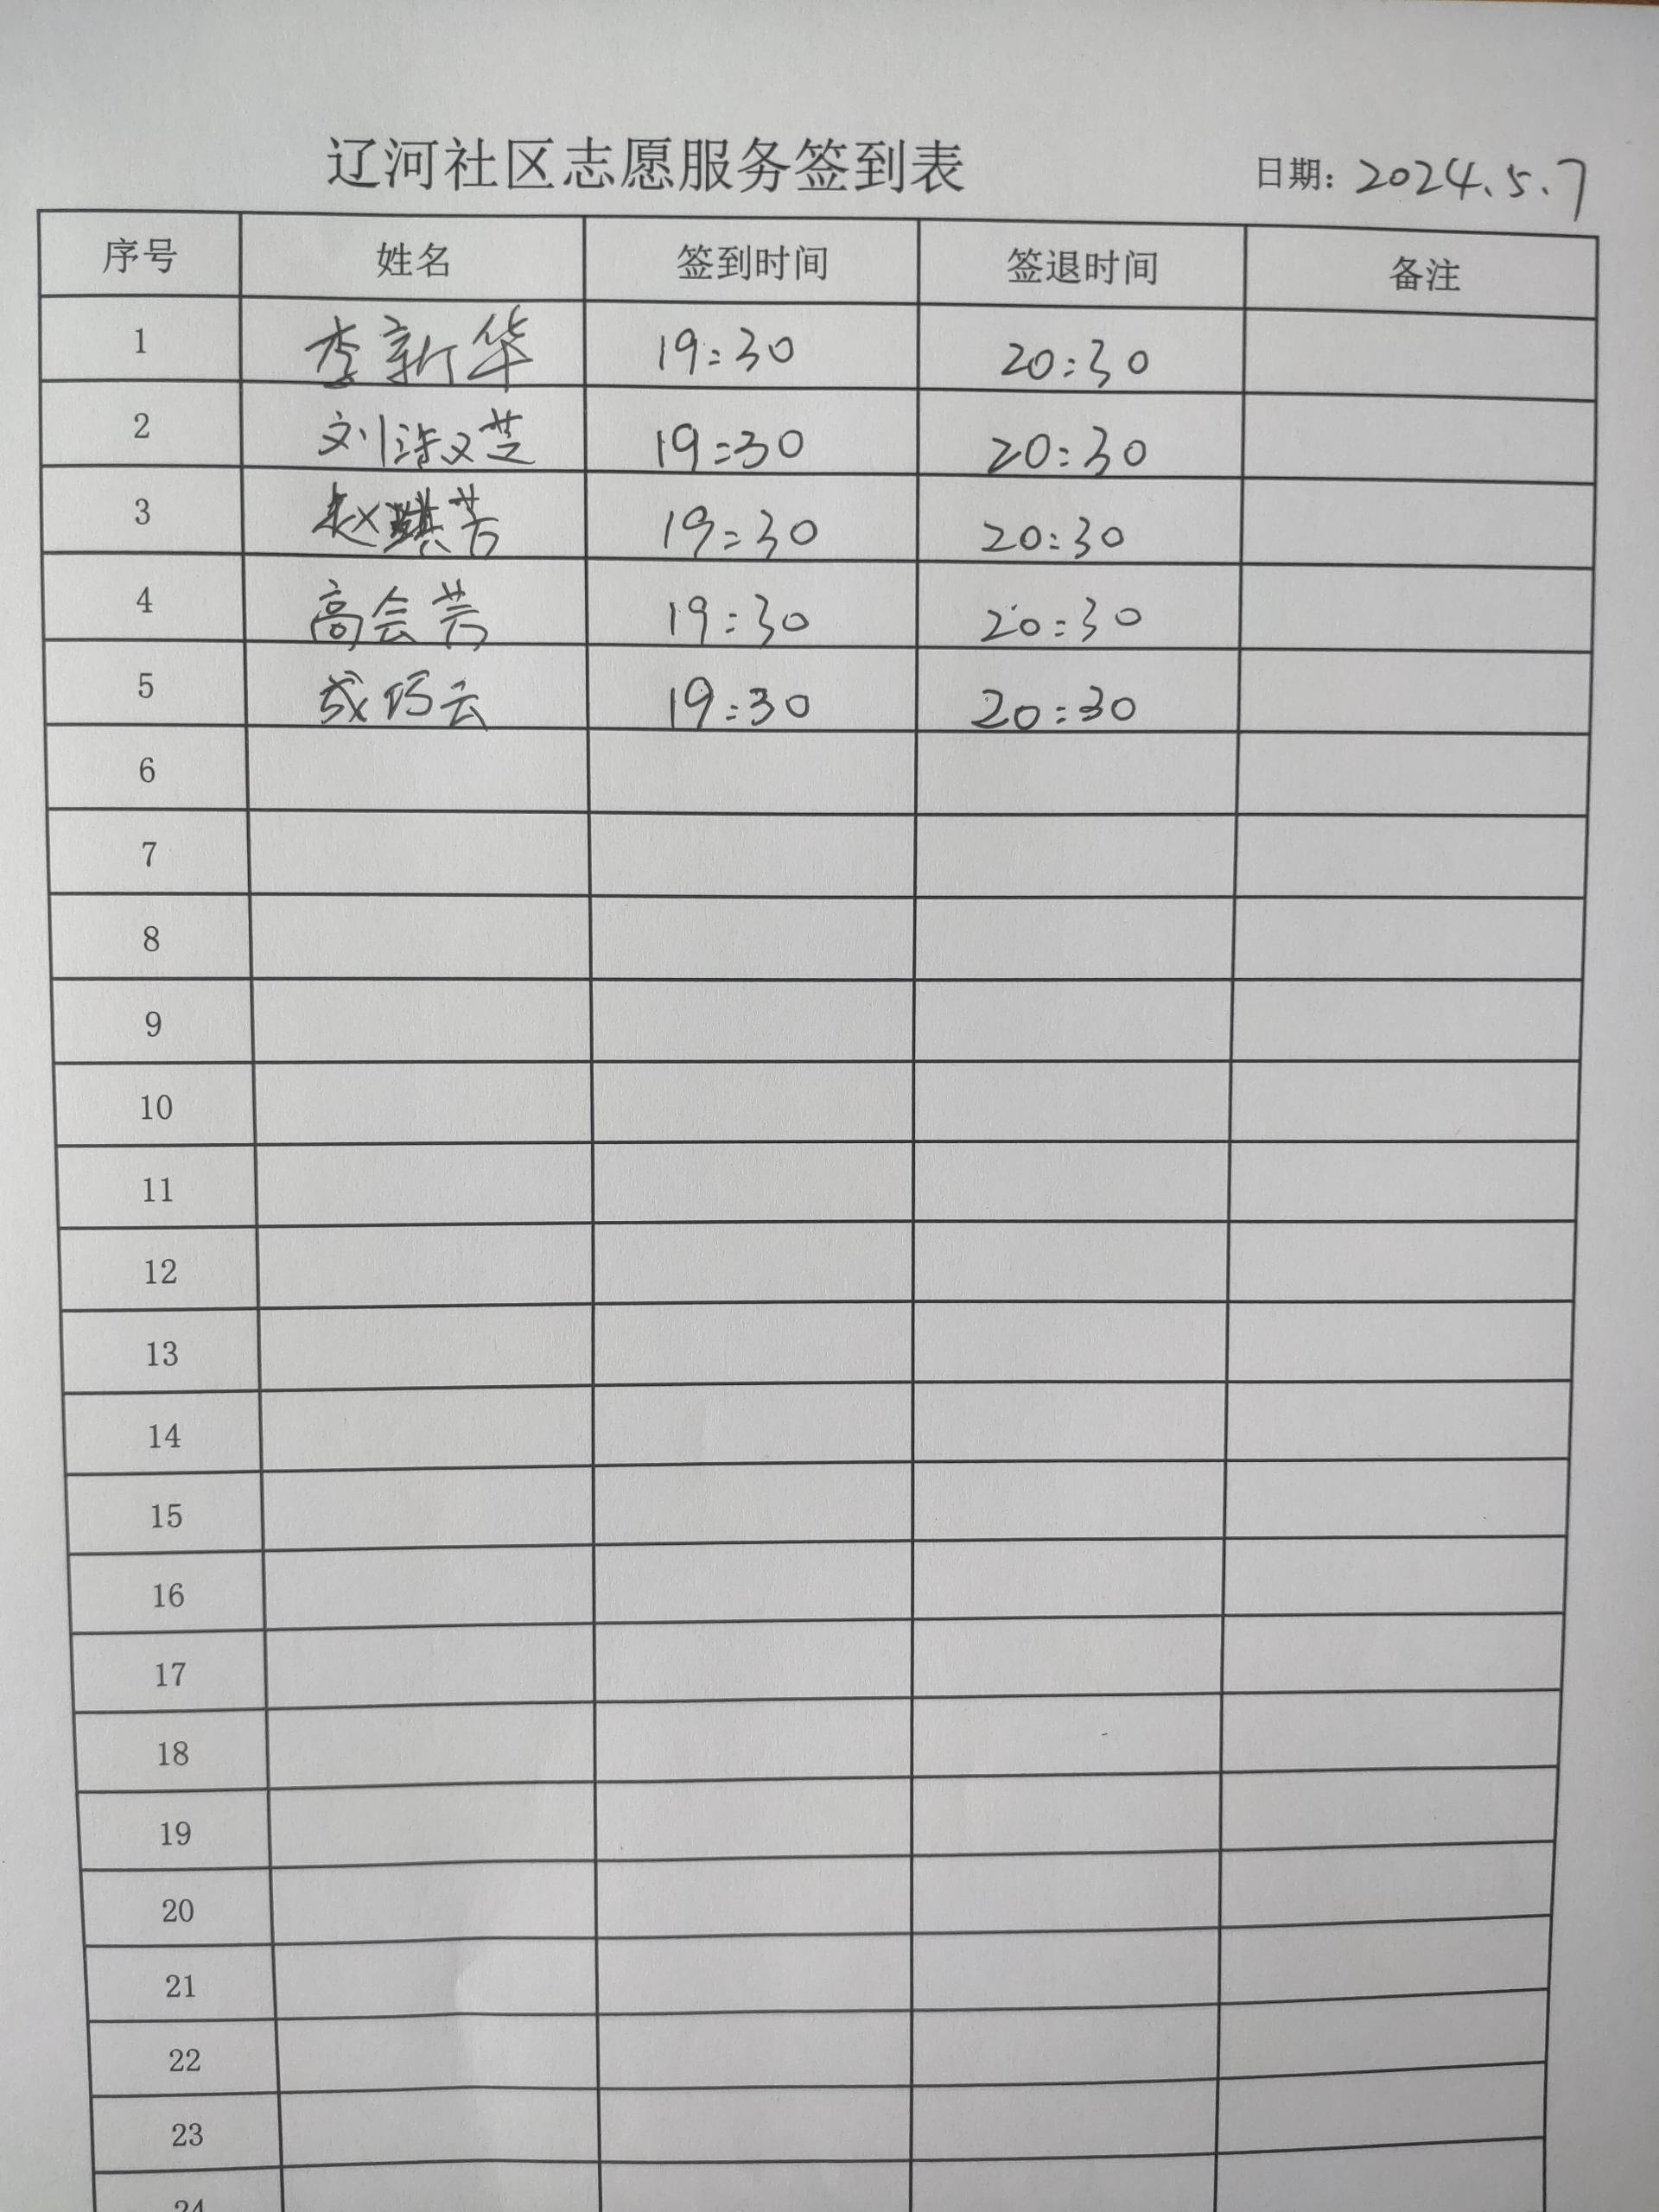 辽河社区志愿服务签到表 日期: 2024.5.7
序号 姓名 签到时间 签退时间 备注
1 李新华 19:30 20:30
2 刘淑芝 19:30 20:30
3 赵琪芳 19:30 20:30
4 高会芳 19:30 20:30
5 成巧云 19:30 20:30
6
7
8
9
10
11
12
13
14
15
16
17
18
19
20
21
22
23
24